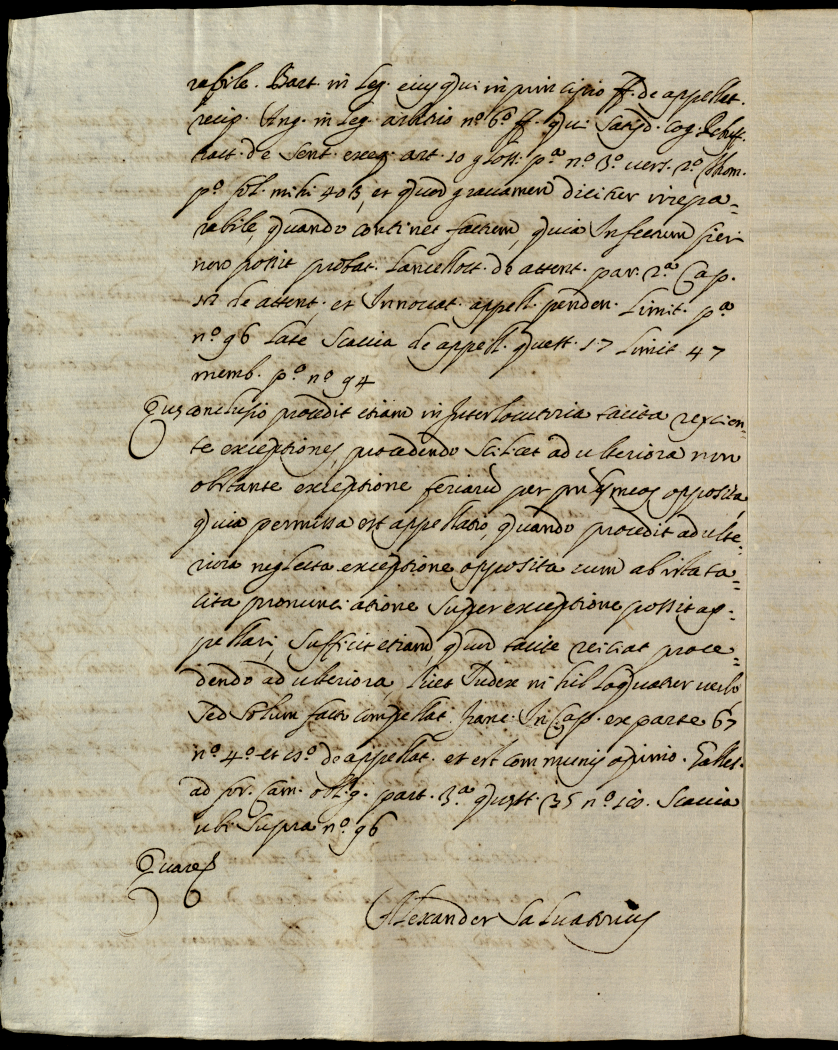 rabile. Bart. in leg. eius qui in principio ff. de appellat.
recip. Ang. in leg. arbitrio nº 6º ff. qui satisd. cog. Rebuff.
tract. de sent. exeq. art. 10 gloss. pª nº 3º vers. 2º
pº fol. mihi 403, et quod gravamen dicitur irrepa=
rabile, quando continet factum, quia Infectum fieri
non possit probat. Lancellott. de attent. par. 2ª Cap.
12 de attent. et Innovat. appell. penden. Limit. pª
nº 96 late Scaccia de appell. quest. 17 Limit 47
memb. pº nº 94
Quę conclusio procedit etiam in Interlocutoria tacita reijcien=
te exceptiones, procedendo scilicet ad ulteriora non
obstante exceptione feriarum per opposita,
quia permissa est appellatio, quando procedit ad ulte=
riora neglecta exceptione opposita cum ab ista ta=
cita pronunciatione super exceptione possit ap=
pellari, sufficit etiam, quod tacite reijciat proce=
dendo ad ulteriora, licet Iudex nihil loquatur verbo
sed solum facto compellat. Franc. In Cap. ex parte 67
nº 4º et de appellat. et est communis opinio.
ad for. Cam. oblig. part. 3ª quest. 35 nº 100. Scaccia
ubi supra nº 96
Quare
Alexander Salvatorius